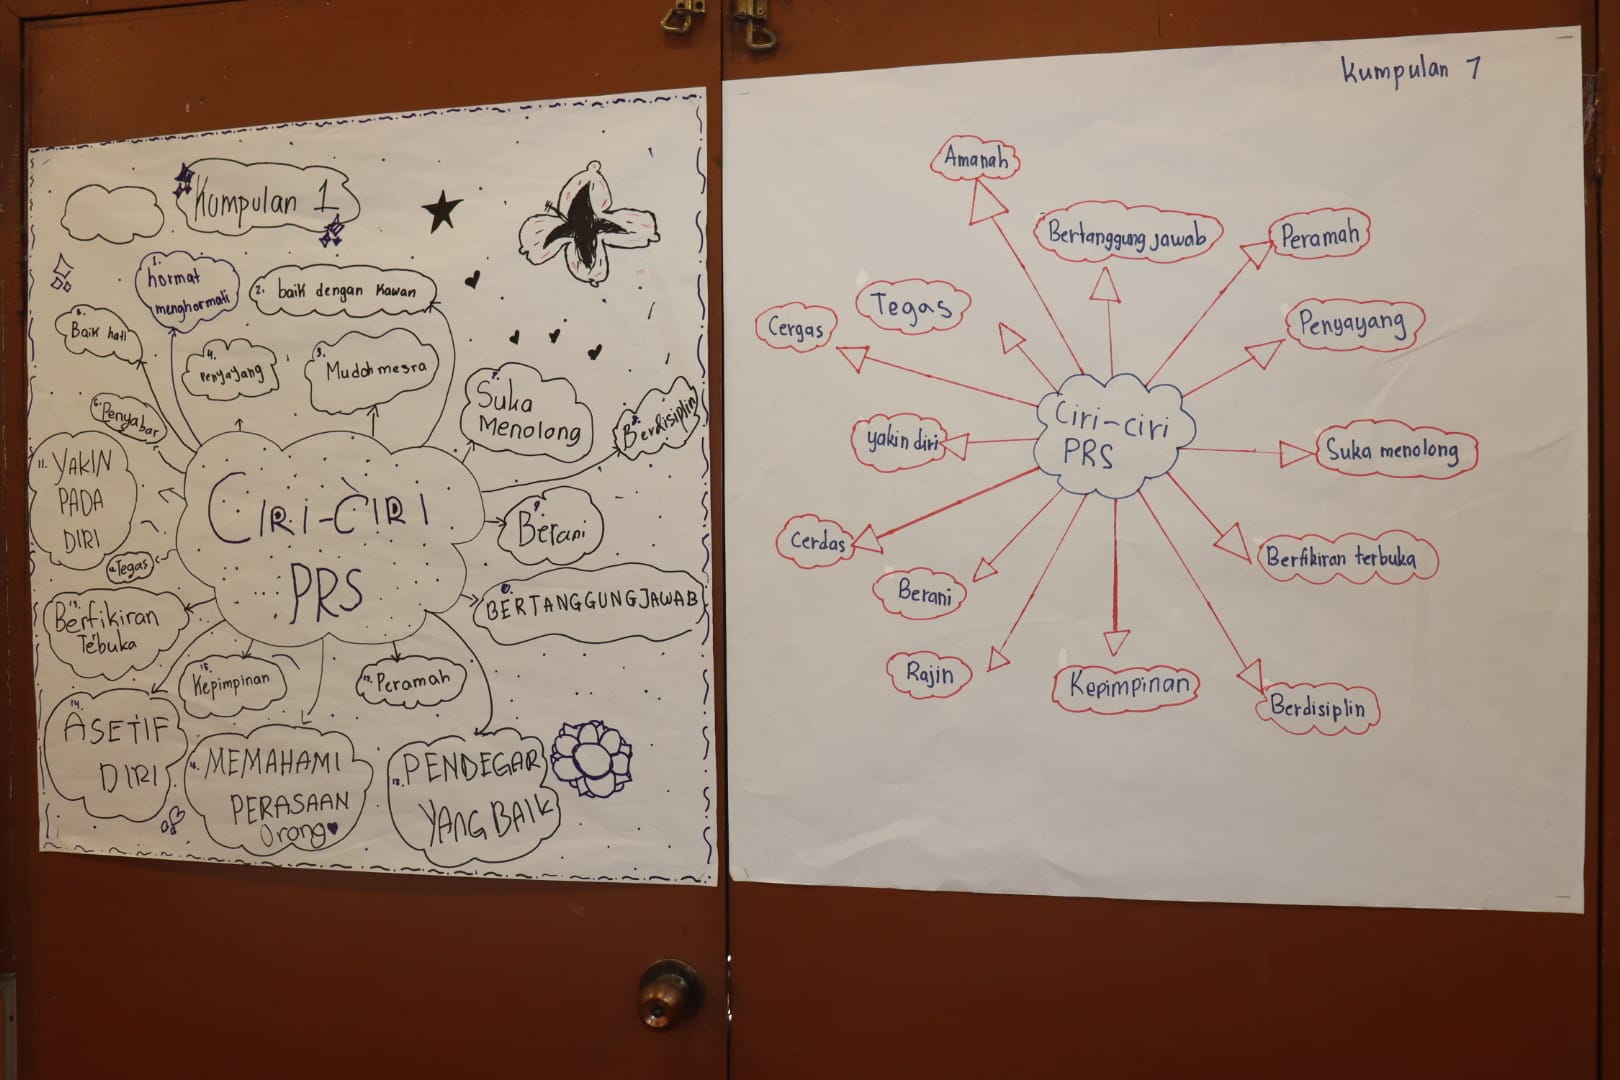 Kumpulan 1
1. hormat
menghormati
2. baik dengan kawan
3. Mudah mesra
4. Penyayang
Baik hati
6. Penyabar
7. Suka
Menolong
8. Berdisiplin
9. Berani
10. BERTANGGUNGJAWAB
11. YAKIN
PADA
DIRI
Tegas
Berfikiran
Tebuka
14. ASETIF
DIRI
15. Kepimpinan
16. MEMAHAMI
PERASAAN
Orang
Peramah
PENDEGAR
YANG BAIK
CIRI-CIRI
PRS
Kumpulan 7
Amanah
Bertanggung jawab
Peramah
Tegas
Cergas
Penyayang
Ciri-ciri
PRS
yakin diri
Suka menolong
Cerdas
Berfikiran terbuka
Berani
Rajin
Kepimpinan
Berdisiplin